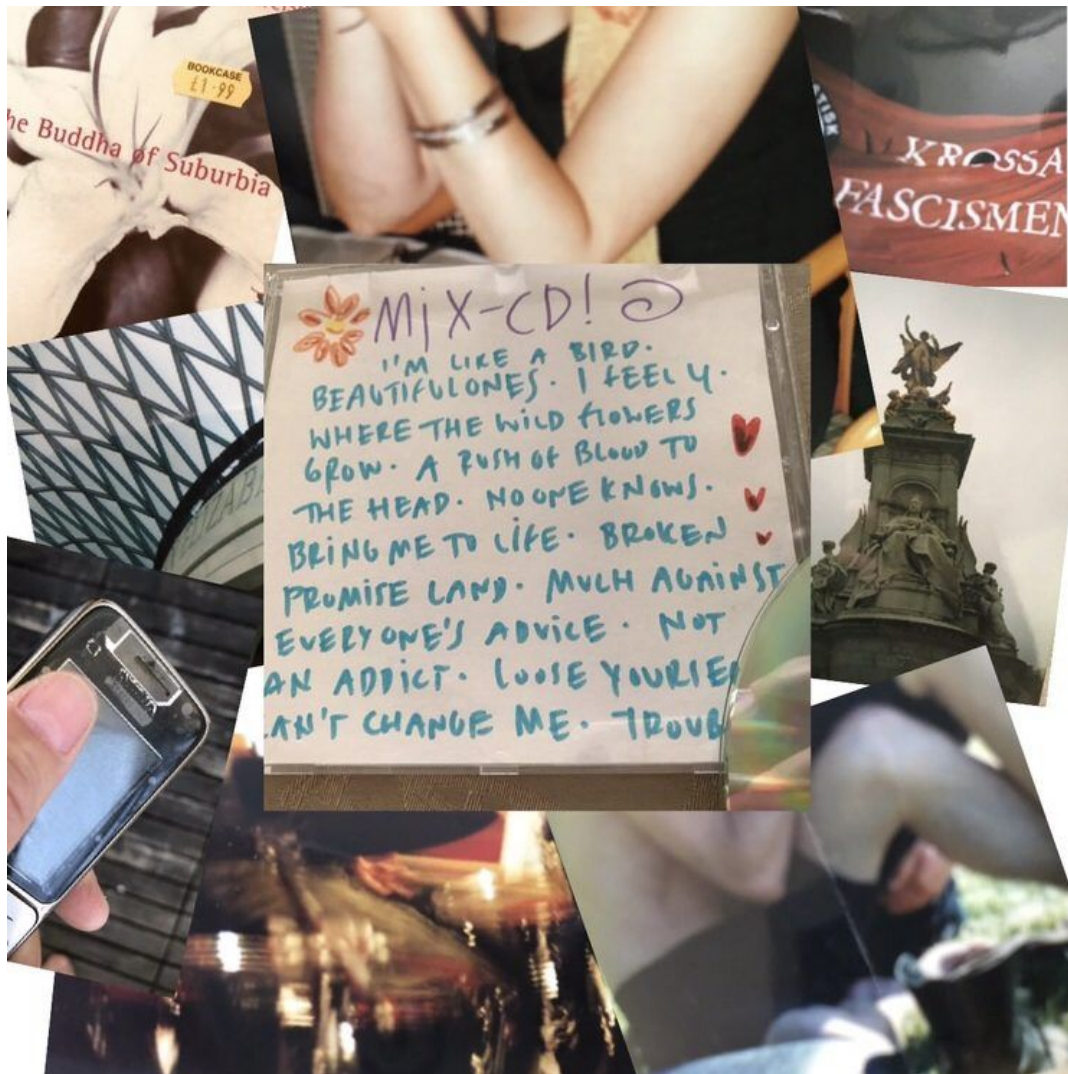 BOOKCASE
£1.99
he Buddha of Suburbia
ATISK
KROSSA
FASCISMEN
MiX-CD!
I'M LIKE A BIRD.
BEAUTIFUL ONES. I FEEL Y.
WHERE THE WILD flOWERS
GROW. A RUSH OF BLOOD TO
THE HEAD. NO ONE KNOWS.
BRING ME TO LIFE. BROKEN
PROMISE LAND. MUCH AGAINST
EVERYONE'S ADVICE. NOT
AN ADDICT. LOOSE YOURSEL
AN'T CHANGE ME. TROUB